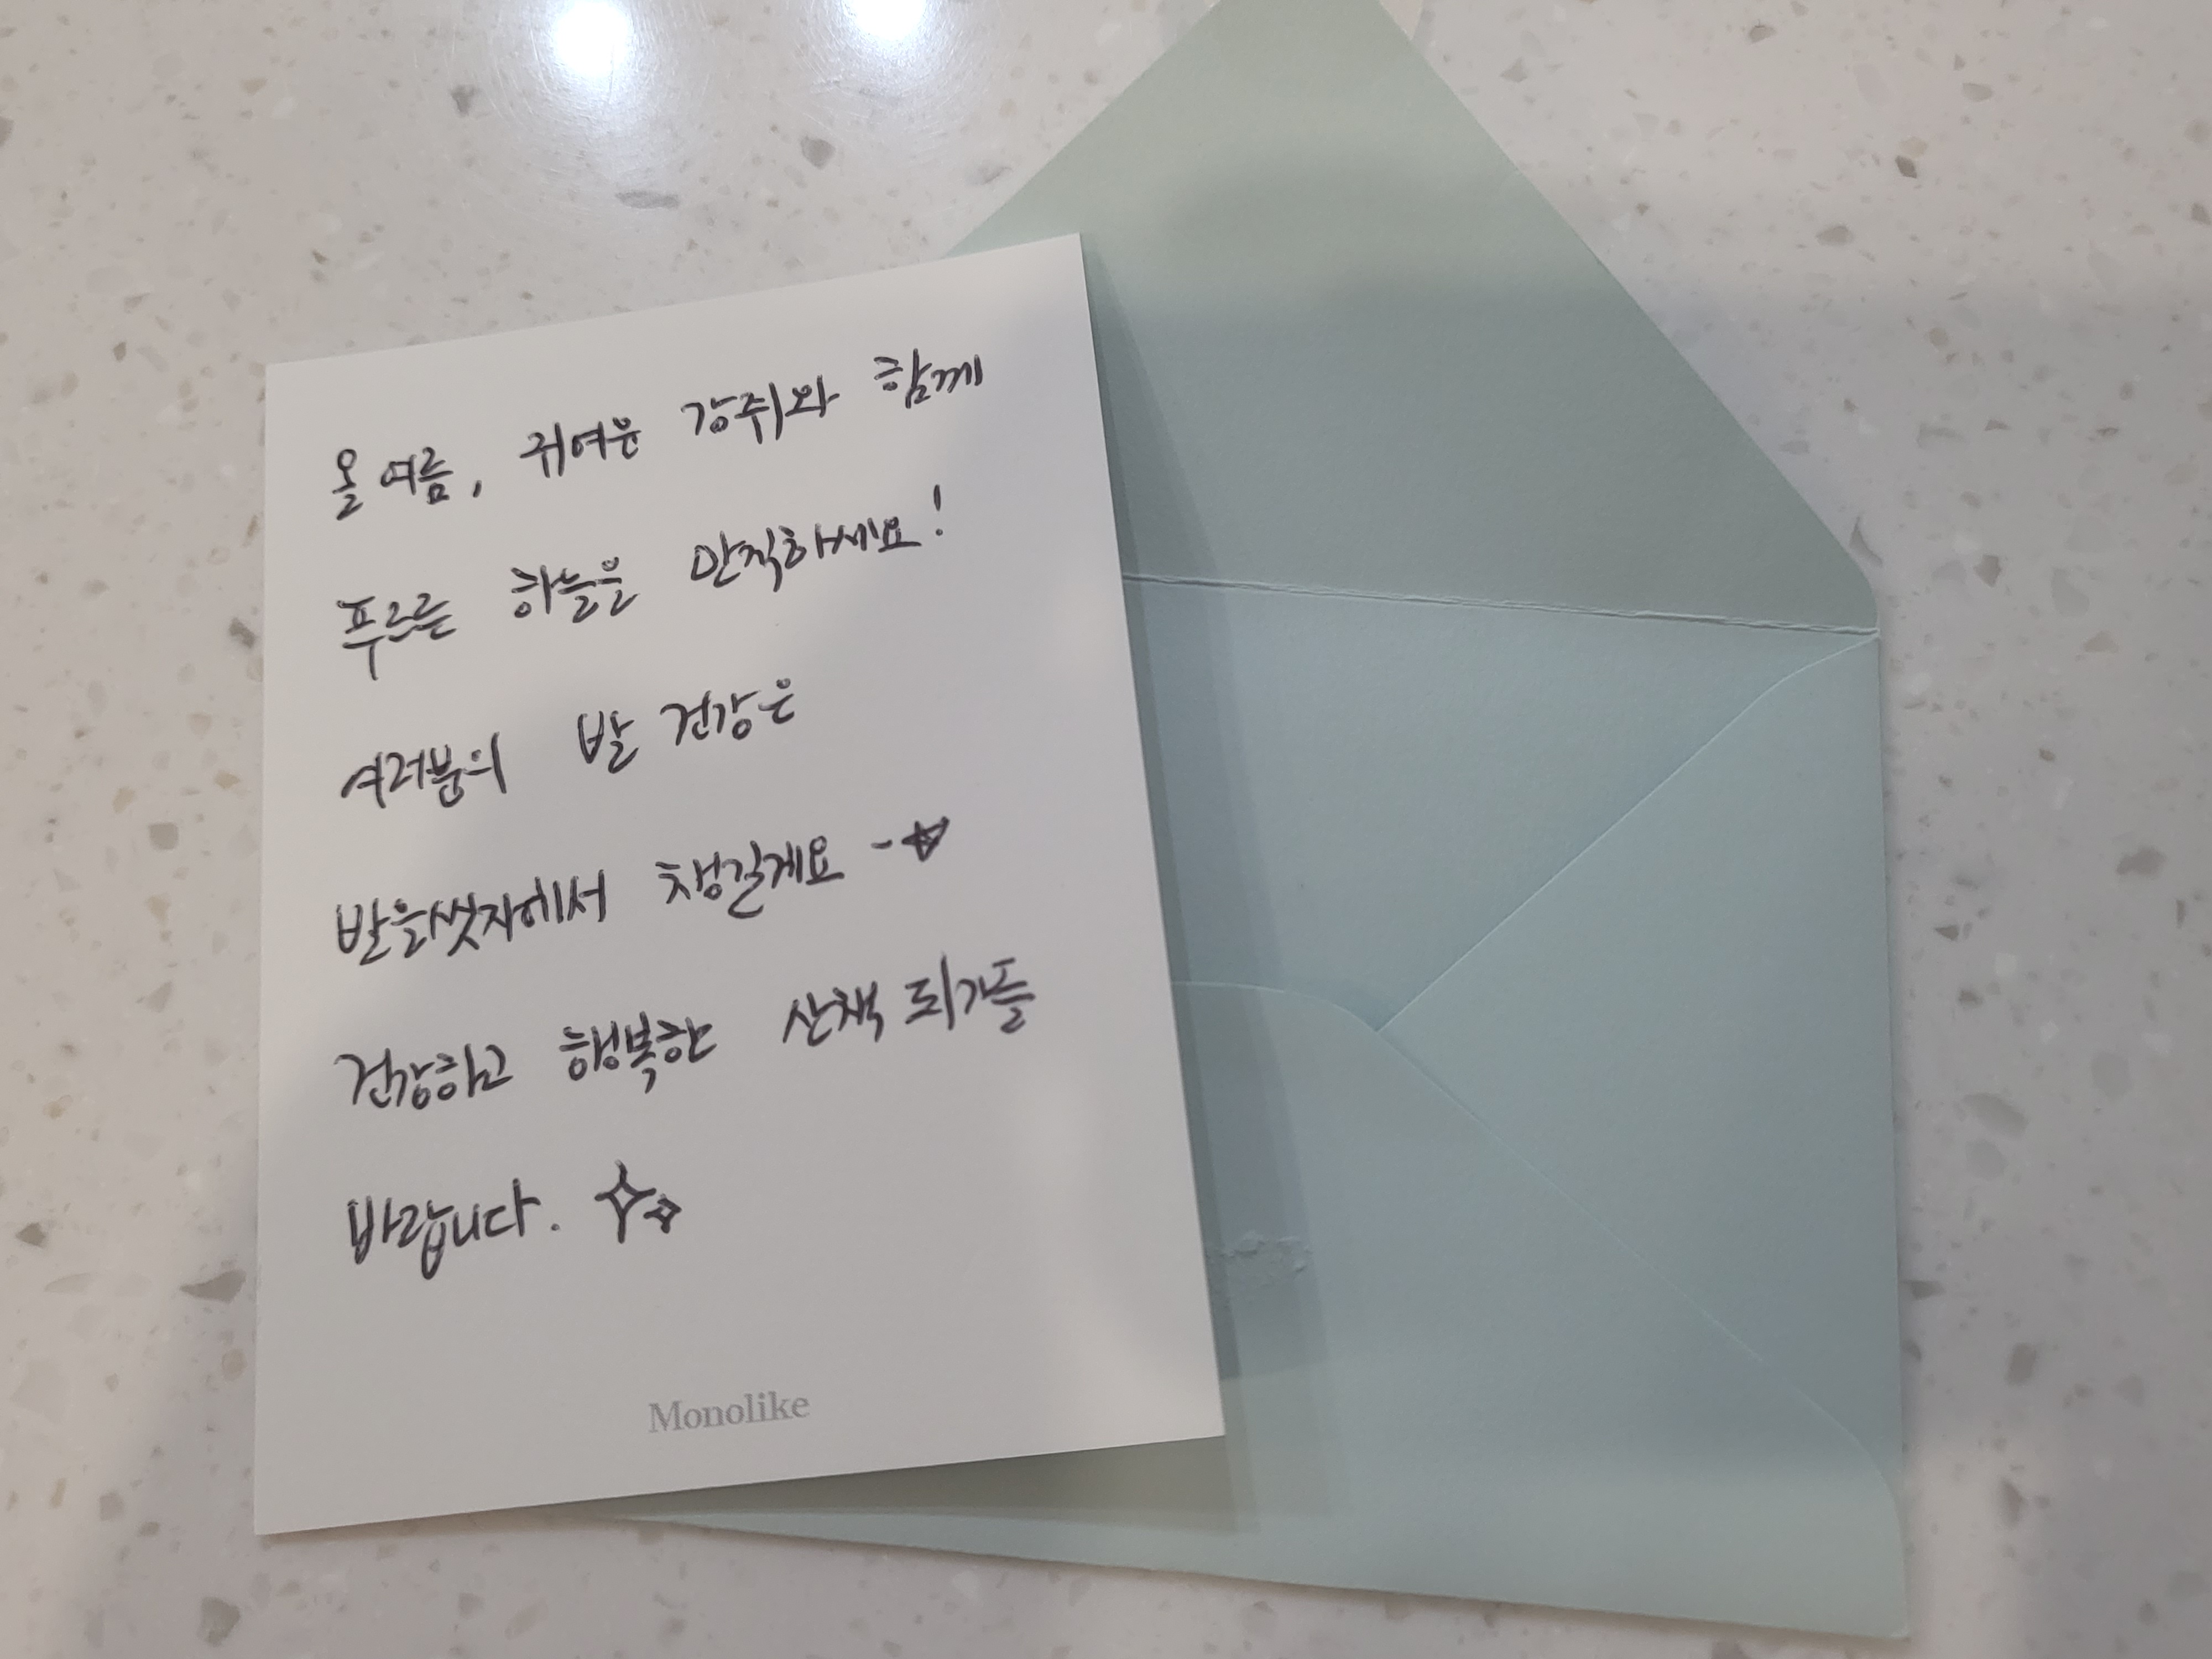 올 여름, 귀여운 강쥐와 함께
푸르른 하늘을 만끽하세요!
여러분의 발 건강은
발을씻자에서 챙길게요 -☆
건강하고 행복한 산책 되기를
바랍니다.
Monolike